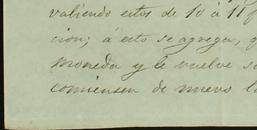 valiendo estos de 10 á 11
cion; á esto se agrega, q
moneda y le vuelve
comiensen de nuevo